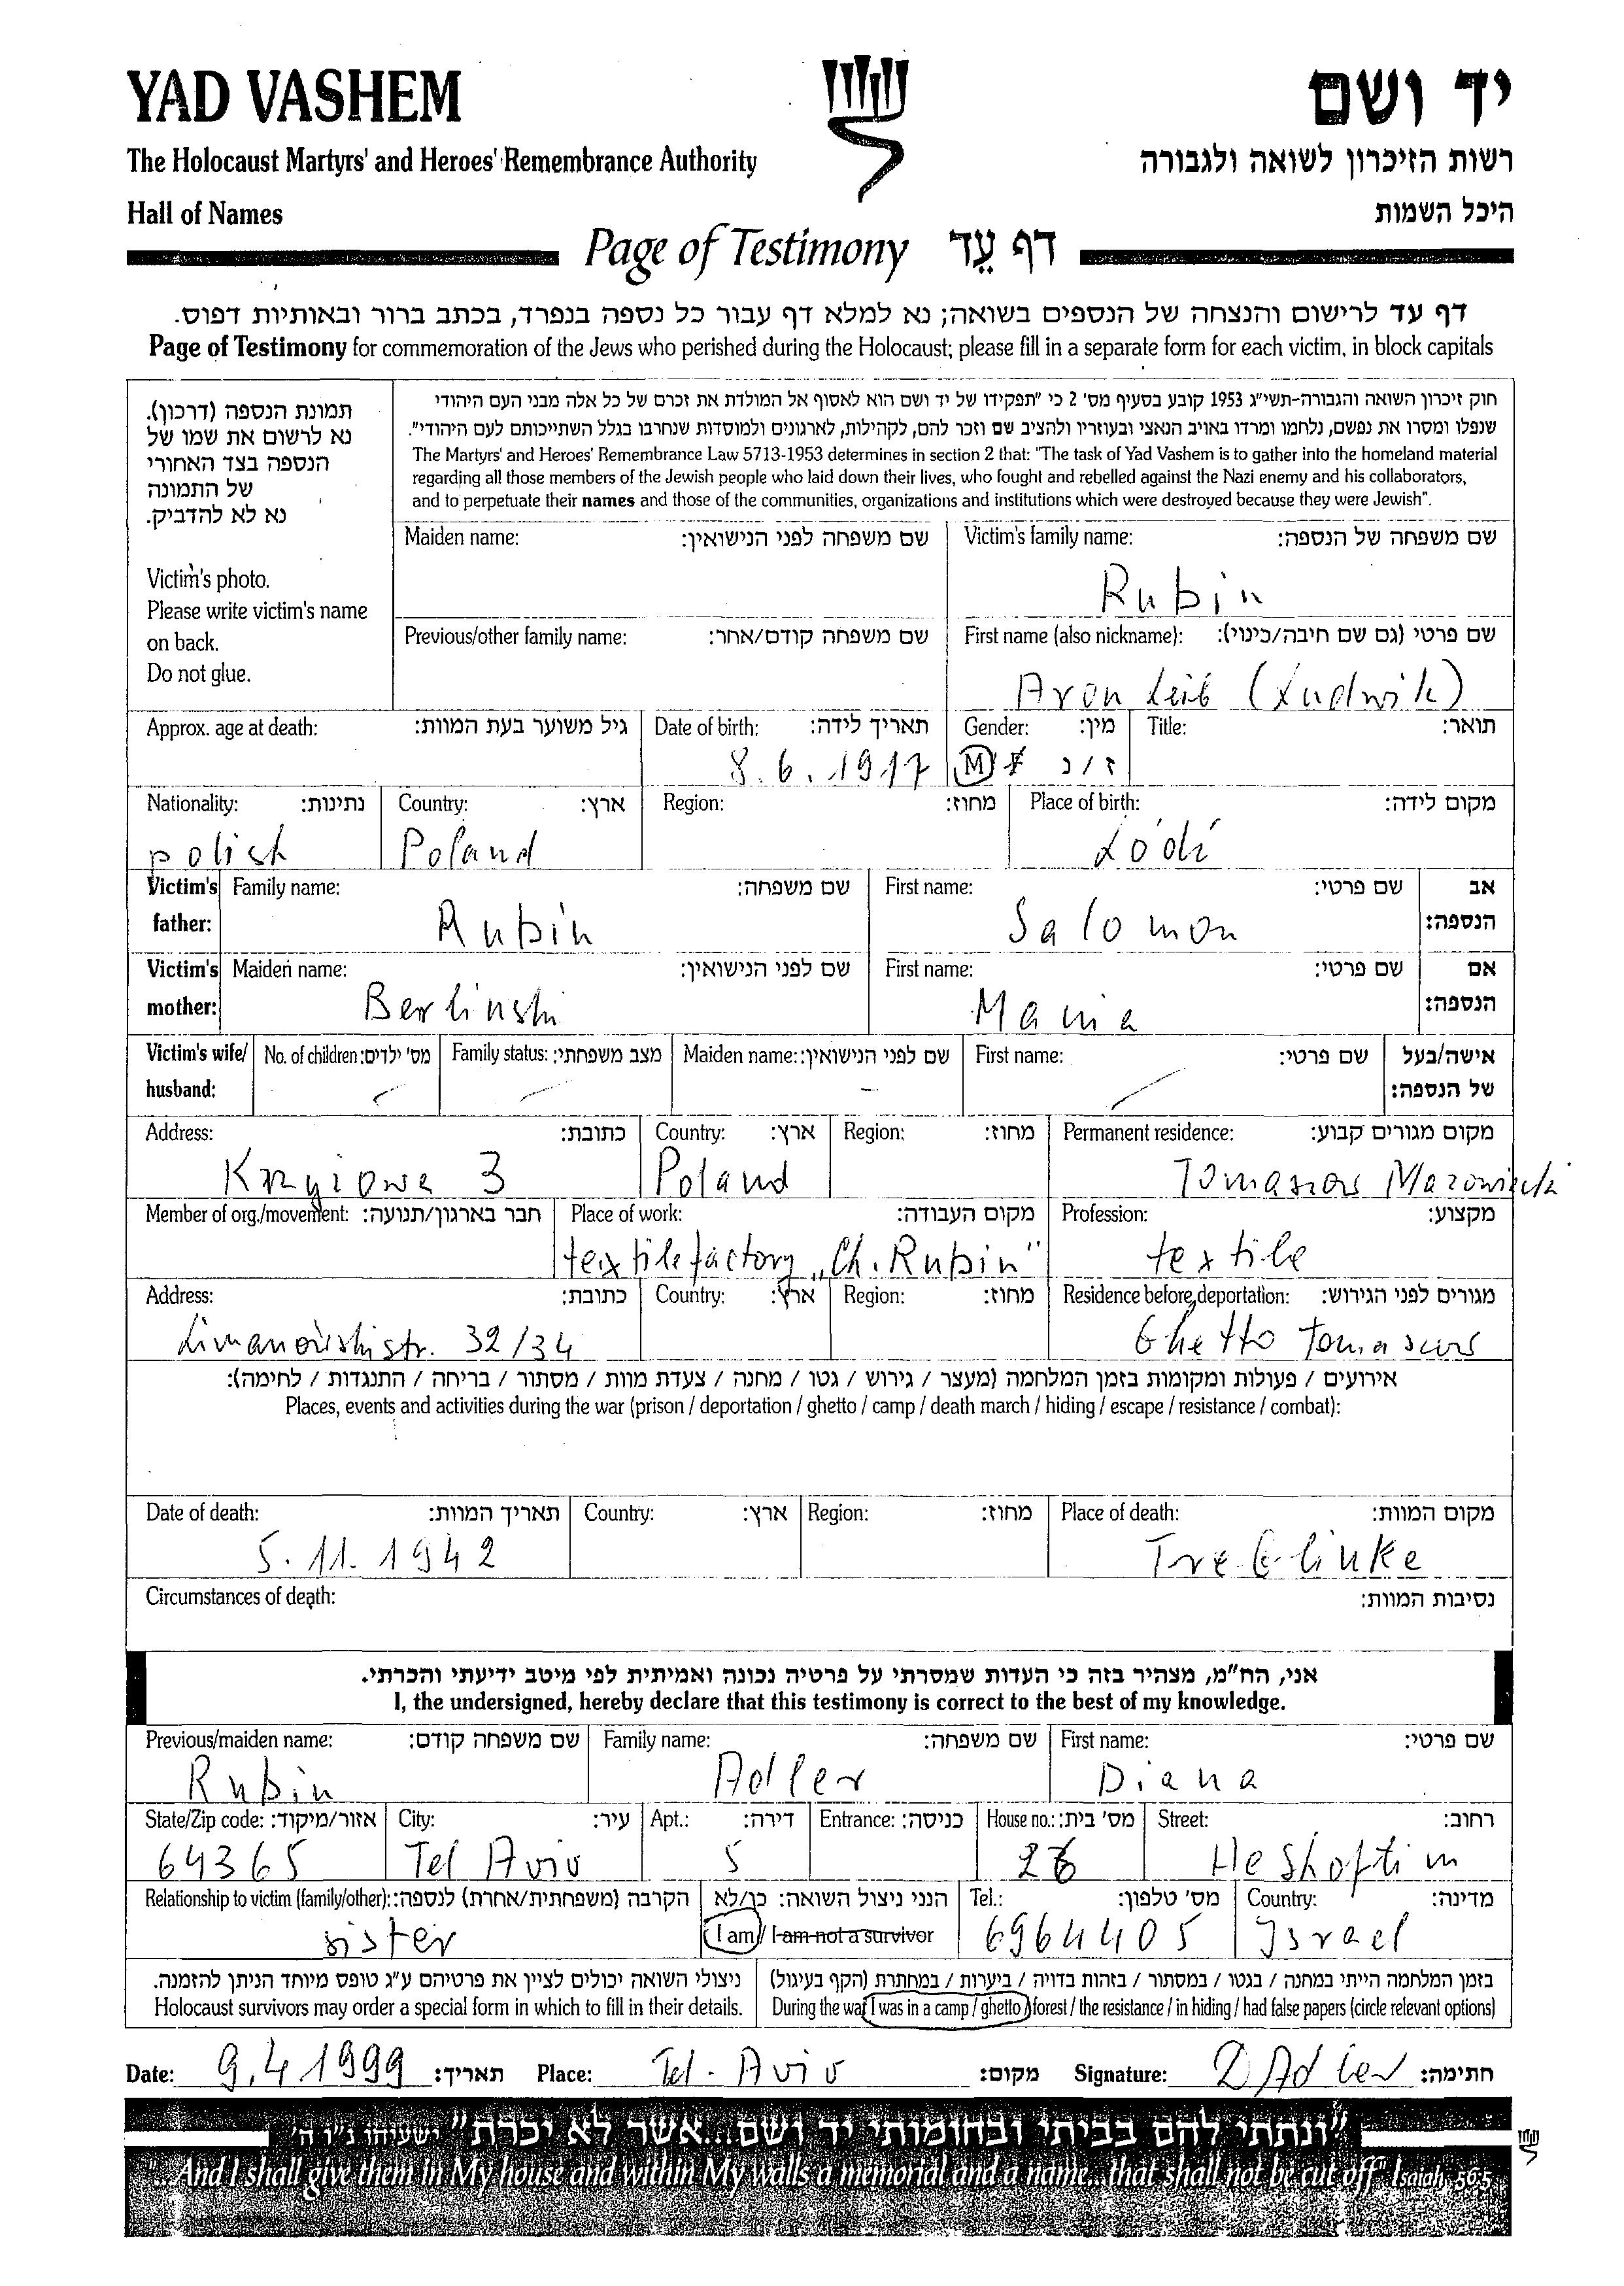 YAD VASHEM
יד ושם
The Holocaust Martyrs' and Heroes' Remembrance Authority
רשות הזיכרון לשואה ולגבורה
Hall of Names
היכל השמות
Page of Testimony דף עֵד
דף עד לרישום והנצחה של הנספים בשואה; נא למלא דף עבור כל נספה בנפרד, בכתב ברור ובאותיות דפוס.
Page of Testimony for commemoration of the Jews who perished during the Holocaust; please fill in a separate form for each victim, in block capitals
תמונת הנספה (דרכון).
נא לרשום את שמו של
הנספה בצד האחורי
של התמונה
נא לא להדביק.
Victim's photo.
Please write victim's name
on back.
Do not glue.
חוק זיכרון השואה והגבורה-תשי״ג 1953 קובע בסעיף מס' 2 כי "תפקידו של יד ושם הוא לאסוף אל המולדת את זכרם של כל אלה מבני העם היהודי
שנפלו ומסרו את נפשם, נלחמו ומרדו באויב הנאצי ובעוזריו ולהציב שם וזכר להם, לקהילות, לארגונים ולמוסדות שנחרבו בגלל השתייכותם לעם היהודי".
The Martyrs' and Heroes' Remembrance Law 5713-1953 determines in section 2 that: "The task of Yad Vashem is to gather into the homeland material
regarding all those members of the Jewish people who laid down their lives, who fought and rebelled against the Nazi enemy and his collaborators,
and to perpetuate their names and those of the communities, organizations and institutions which were destroyed because they were Jewish".
Maiden name: שם משפחה לפני הנישואין: Victim's family name: שם משפחה של הנספה:
Rubin
Previous/other family name: שם משפחה קודם/אחר: First name (also nickname): שם פרטי (גם שם חיבה/כינוי):
Aron Leib (Ludwik)
Approx. age at death: גיל משוער בעת המוות: Date of birth: תאריך לידה: Gender: מין: Title: תואר:
8.6.1917 M/F ז/נ
Nationality: נתינות: Country: ארץ: Region: מחוז: Place of birth: מקום לידה:
polish Poland Łódź
Victim's Family name: שם משפחה: First name: שם פרטי: אב
father: Rubin Salomon הנספה:
Victim's Maiden name: שם לפני הנישואין: First name: שם פרטי: אם
mother: Berlinski Mania הנספה:
Victim's wife/ No. of children: מס' ילדים: Family status: מצב משפחתי: Maiden name: שם לפני הנישואין: First name: שם פרטי: אישה/בעל
husband: / / - / של הנספה:
Address: כתובת: Country: ארץ: Region: מחוז: Permanent residence: מקום מגורים קבוע:
Krzyżowa 3 Poland Tomaszow Mazowiecki
Member of org./movement: חבר בארגון/תנועה: Place of work: מקום העבודה: Profession: מקצוע:
textilefactory „Ch. Rubin" textile
Address: כתובת: Country: ארץ: Region: מחוז: Residence before deportation: מגורים לפני הגירוש:
Limanowski str. 32/34 Ghetto Tomaszow
אירועים / פעולות ומקומות בזמן המלחמה (מעצר / גירוש / גטו / מחנה / צעדת מוות / מסתור / בריחה / התנגדות / לחימה):
Places, events and activities during the war (prison / deportation / ghetto / camp / death march / hiding / escape / resistance / combat):
Date of death: תאריך המוות: Country: ארץ: Region: מחוז: Place of death: מקום המוות:
5.11.1942 Treblinke
Circumstances of death: נסיבות המוות:
אני, הח״מ, מצהיר בזה כי העדות שמסרתי על פרטיה נכונה ואמיתית לפי מיטב ידיעתי והכרתי.
I, the undersigned, hereby declare that this testimony is correct to the best of my knowledge.
Previous/maiden name: שם משפחה קודם: Family name: שם משפחה: First name: שם פרטי:
Rubin Adler Diana
State/Zip code: אזור/מיקוד: City: עיר: Apt.: דירה: Entrance: כניסה: House no.: מס' בית: Street: רחוב:
64365 Tel Aviv 5 26 HeShoftim
Relationship to victim (family/other): הקרבה (משפחתית/אחרת) לנספה: הנני ניצול השואה: כן/לא Tel.: מס' טלפון: Country: מדינה:
sister I am / I am not a survivor 6964405 Israel
ניצולי השואה יכולים לציין את פרטיהם ע״ג טופס מיוחד הניתן להזמנה. בזמן המלחמה הייתי במחנה / בגטו / במסתור / בזהות בדויה / ביערות / במחתרת (הקף בעיגול)
Holocaust survivors may order a special form in which to fill in their details. During the war I was in a camp / ghetto / forest / the resistance / in hiding / had false papers (circle relevant options)
Date: 9.4 1999 תאריך: Place: Tel-Aviv מקום: Signature: D Adler חתימה:
"ונתתי להם בביתי ובחומותי יד ושם...אשר לא יכרת" ישעיהו נ״ו ה׳
"...And I shall give them in My house and within My walls a memorial and a name...that shall not be cut off" Isaiah, 56:5